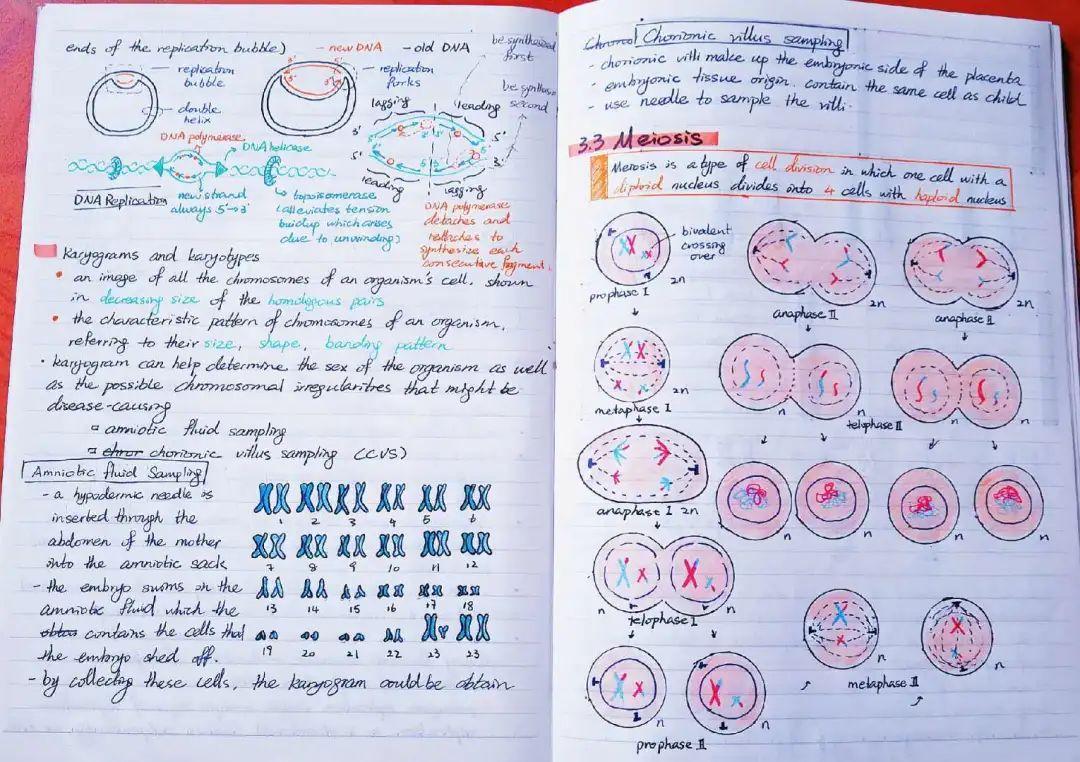 ends of the replication bubble)
- new DNA - old DNA
be synthesized first
replication bubble
double helix
replication forks
be synthesis second
lagging
leading
3'
5'
5'
3'
leading
lagging
DNA polymerase
DNA helicase
DNA Replication
new strand always 5'→3'
topoisomerase
(alleviates tension
buidup which arises
due to unwinding)
DNA polymerase
detaches and
rettaches to
synthesize each
consecutive fragment.
Karyograms and karyotypes
• an image of all the chromosomes of an organism's cell, shown
in decreasing size of the homologous pairs
• the characteristic pattern of chromosomes of an organism,
referring to their size, shape, banding pattern
• karyogram can help determine the sex of the organism as well
as the possible chromosomal irregularitres that might be
disease-causing
amniotic fluid sampling
chror chorionic villus sampling (CVS)
Amniotic fluid Sampling
- a hypodermic needle is
inserted through the
abdomen of the mother
into the amniotic sack
- the embryo swims in the
amniotic fluid which the
contains the cells that
the embryo shed off.
- by collecting these cells, the karyogram could be obtain
1 2 3 4 5 6
7 8 9 10 11 12
13 14 15 16 17 18
19 20 21 22 23 23
Chorional Chorionic villus sampling
- chorionic villi make up the embryonic side of the placenta
- embryonic tissue origin. contain the same cell as child
- use needle to sample the villi.
3.3 Meiosis
Meiosis is a type of cell division in which one cell with a
diploid nucleus divides into 4 cells with haploid nucleus
bivalent
crossing
over
2n
prophase I
2n
metaphase I
anaphase I 2n
n n
telophase I
n n
prophase II
n n
metaphase II
2n
anaphase II
2n
anaphase II
n n n n
telophase II
n n n n